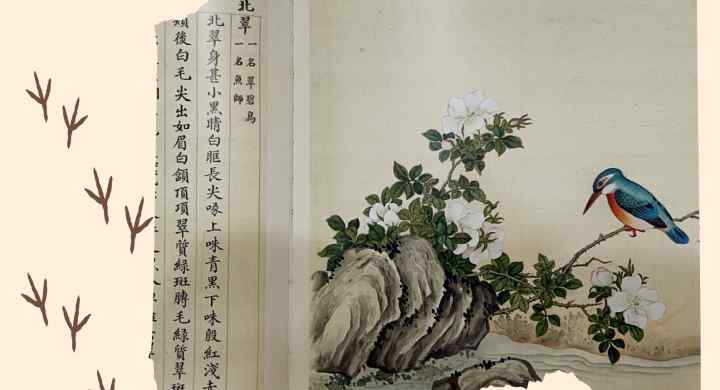 北翠
一名翠碧鳥
一名魚師
北翠身甚小黑睛白眶長尖喙上咮青黑下咮殷紅淺
頰後白毛尖出如眉白頷頂項翠質綠斑膊毛綠質翠斑